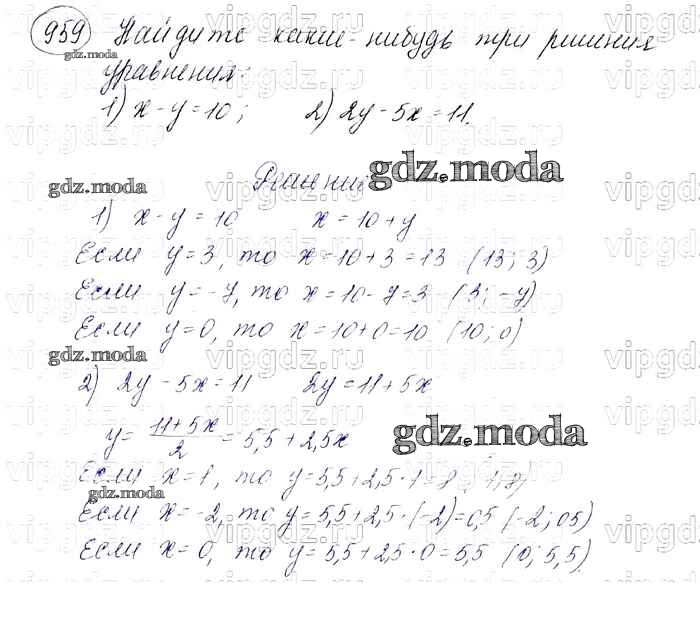 959 Найдите какие-нибудь три решения
gdz.moda
уравнения:
1) x - y = 10; 2) 2y - 5x = 11.
Решение gdz.moda
gdz.moda
1) x - y = 10 x = 10 + y
Если y = 3, то x = 10 + 3 = 13 (13; 3)
Если y = -7, то x = 10 - 7 = 3 (3; -7)
Если y = 0, то x = 10 + 0 = 10 (10; 0)
gdz.moda
2) 2y - 5x = 11 2y = 11 + 5x
y = (11 + 5x)/2 = 5,5 + 2,5x gdz.moda
Если x = 1, то y = 5,5 + 2,5 · 1 = 8 (1; 8)
gdz.moda
Если x = -2, то y = 5,5 + 2,5 · (-2) = 0,5 (-2; 05)
Если x = 0, то y = 5,5 + 2,5 · 0 = 5,5 (0; 5,5).
vipgdz.ru